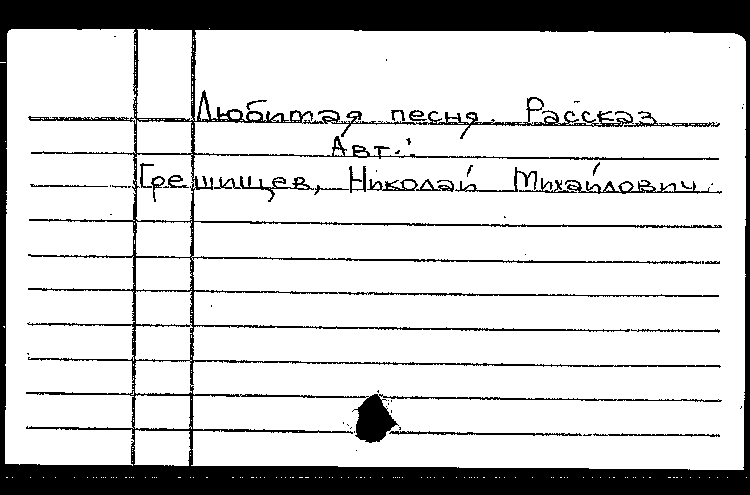 Любимая песня. Рассказ
Авт.:
Грешищев, Николай Михайлович.